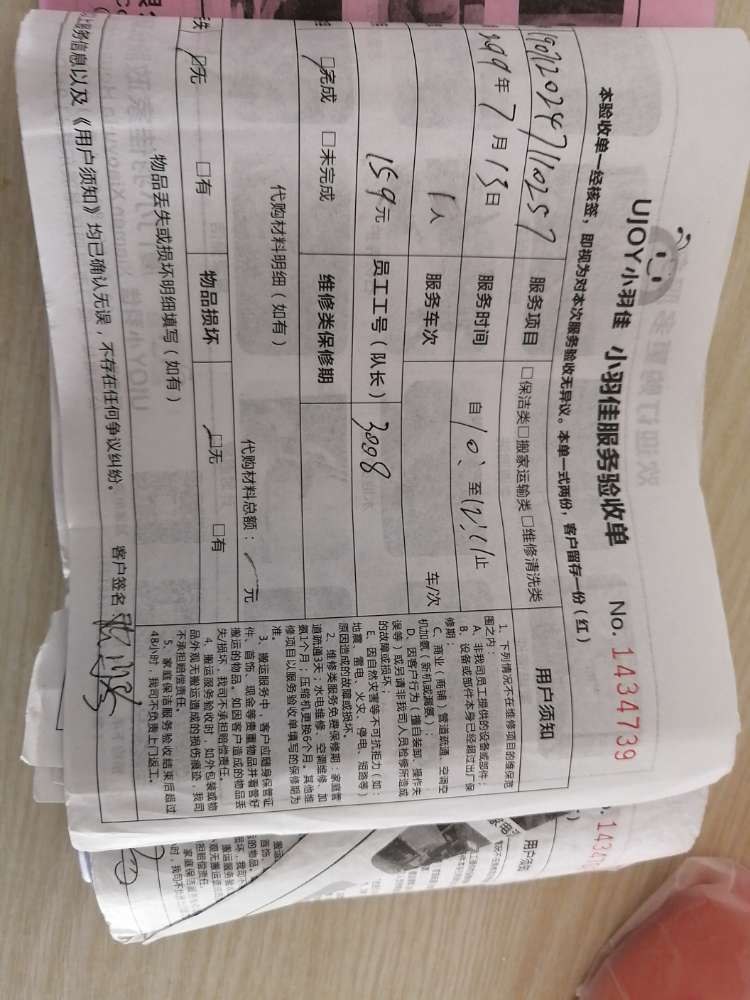 UJOY小羽佳 小羽佳服务验收单 No. 1434739
本验收单一经核签，即视为对本次服务验收无异议。本单一式两份，客户留存一份（红）
服务项目 □保洁类□搬家运输类□维修清洗类
年7月13日 服务时间 自10: 至12:止
1人 服务车次 车/次
159元 员工工号（队长） 3008
完成 □未完成 维修类保修期
代购材料明细（如有） 代购材料总额： 元
无 □有 物品损坏 无 □有
物品丢失或损坏明细填写（如有）
服务信息以及《用户须知》均已确认无误，不存在任何争议纠纷。 客户签名
用户须知
1、下列情况不在维修项目的维保范
围之内：
A、非我司员工提供的设备或部件；
B、设备或部件本身已经超过出厂保
修期；
C、商业（商铺）管道疏通、空调空
机加氨（新机或漏氨）；
D、因客户行为（擅自装卸、操作失
误等）或另请非我司人员检修所造成
的故障或损坏；
E、因自然灾害等不可抗拒力（如：
地震、雷电、火灾、停电、短路等）
原因造成的故障或损坏。
2、维修类服务免费保修期：家庭管
道疏通3天；水电维修、空调维修、加
氨1个月；压缩机更换6个月。其他维
修项目以服务验收单填写的保修期为
准。
3、搬运服务中，客户应随身保管证
件、首饰、现金等贵重物品并看管好
搬运的物品。如因客户造成的物品丢
失/损坏，我司不承担赔偿责任。
4、搬运服务验收时，如外包装或物
品外观无搬运造成的损伤痕迹，我司
不承担赔偿责任。
5、家庭保洁服务验收结束后超过
48小时，我司不负责上门返工。
用户须知